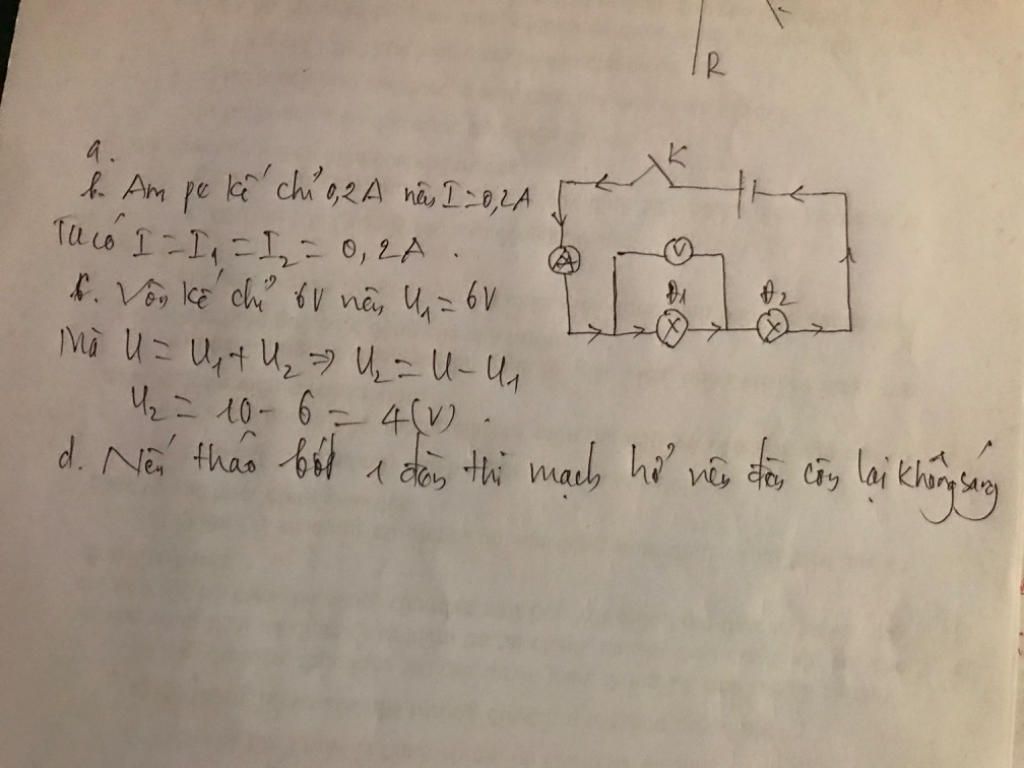 R
a.
b. Am pe kế chỉ 0,2A nên I=0,2A
Ta có I = I1 = I2 = 0,2A .
c. Vôn kế chỉ 6V nên U1 = 6V
Mà U = U1 + U2 => U2 = U - U1
U2 = 10 - 6 = 4(V) .
d. Nếu tháo bớt 1 đèn thì mạch hở nên đèn còn lại không sáng
K
A
V
Đ1 Đ2